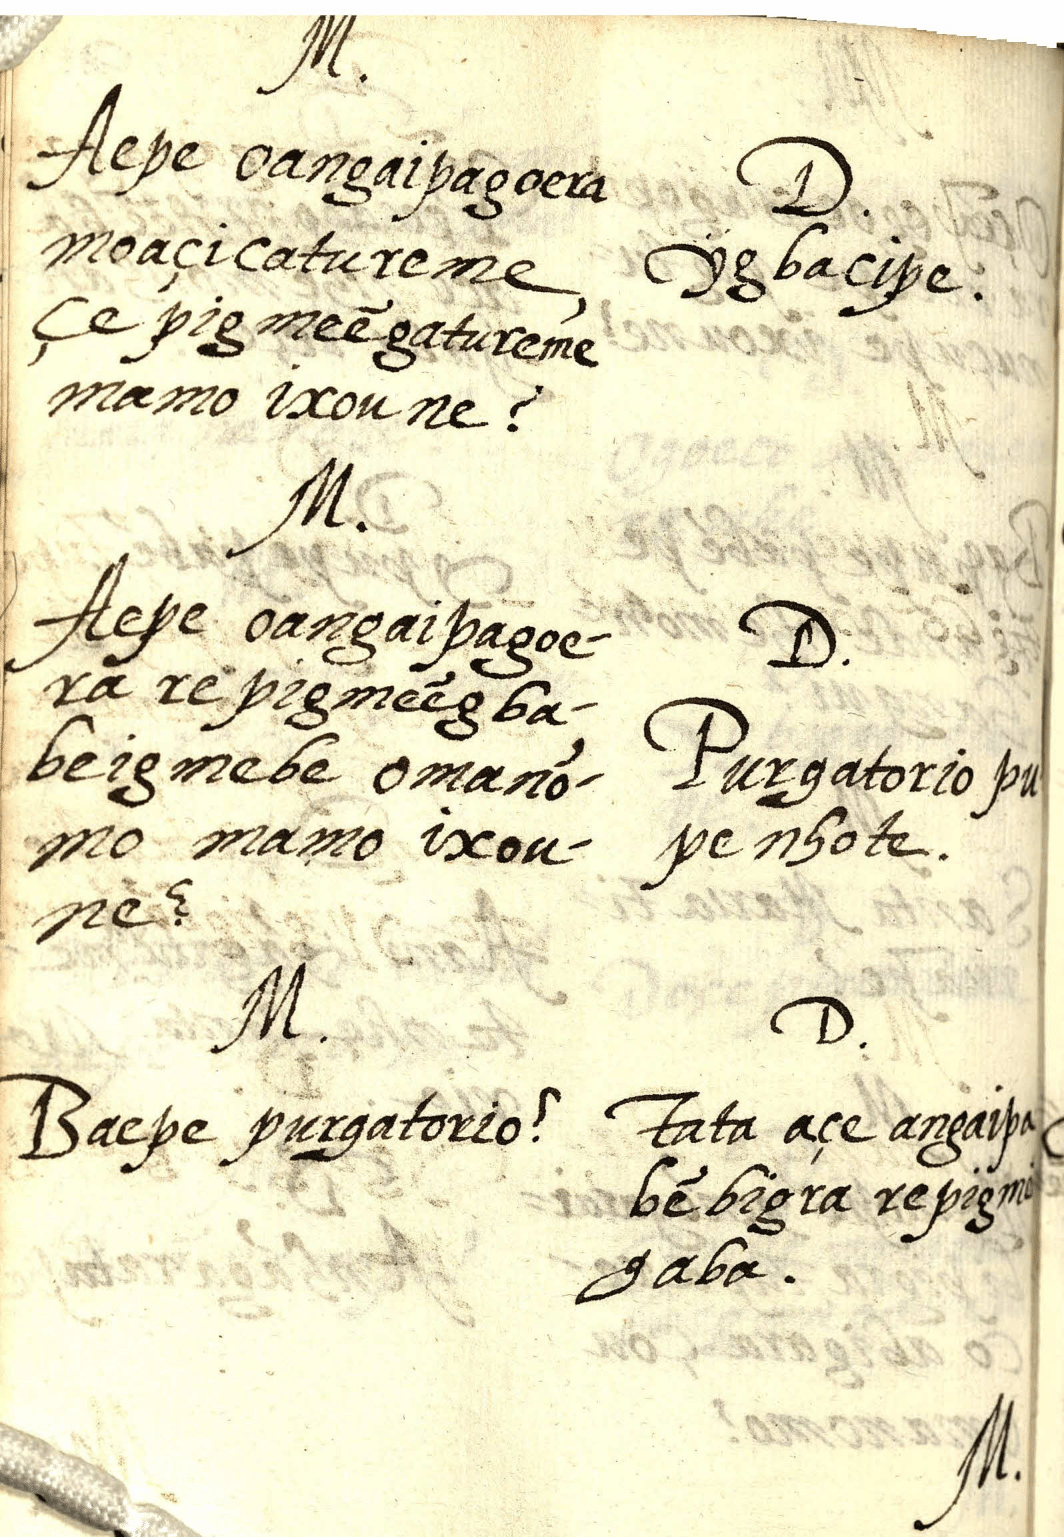 M.
Aepe oangaipagoera
moaçicatureme,
çe pigmeẽgatureme
mamo ixou ne?
D.
ÿgbacipe.
M.
Aepe oangaipagoe-
ra repigmeẽgba-
beigmebe omanõ-
mo mamo ixou-
ne?
D.
Purgatorio pu
pe nhote.
M.
Baepe purgatorio?
D.
Tata açe angaipa
bẽ bigra repigmi
gaba.
M.